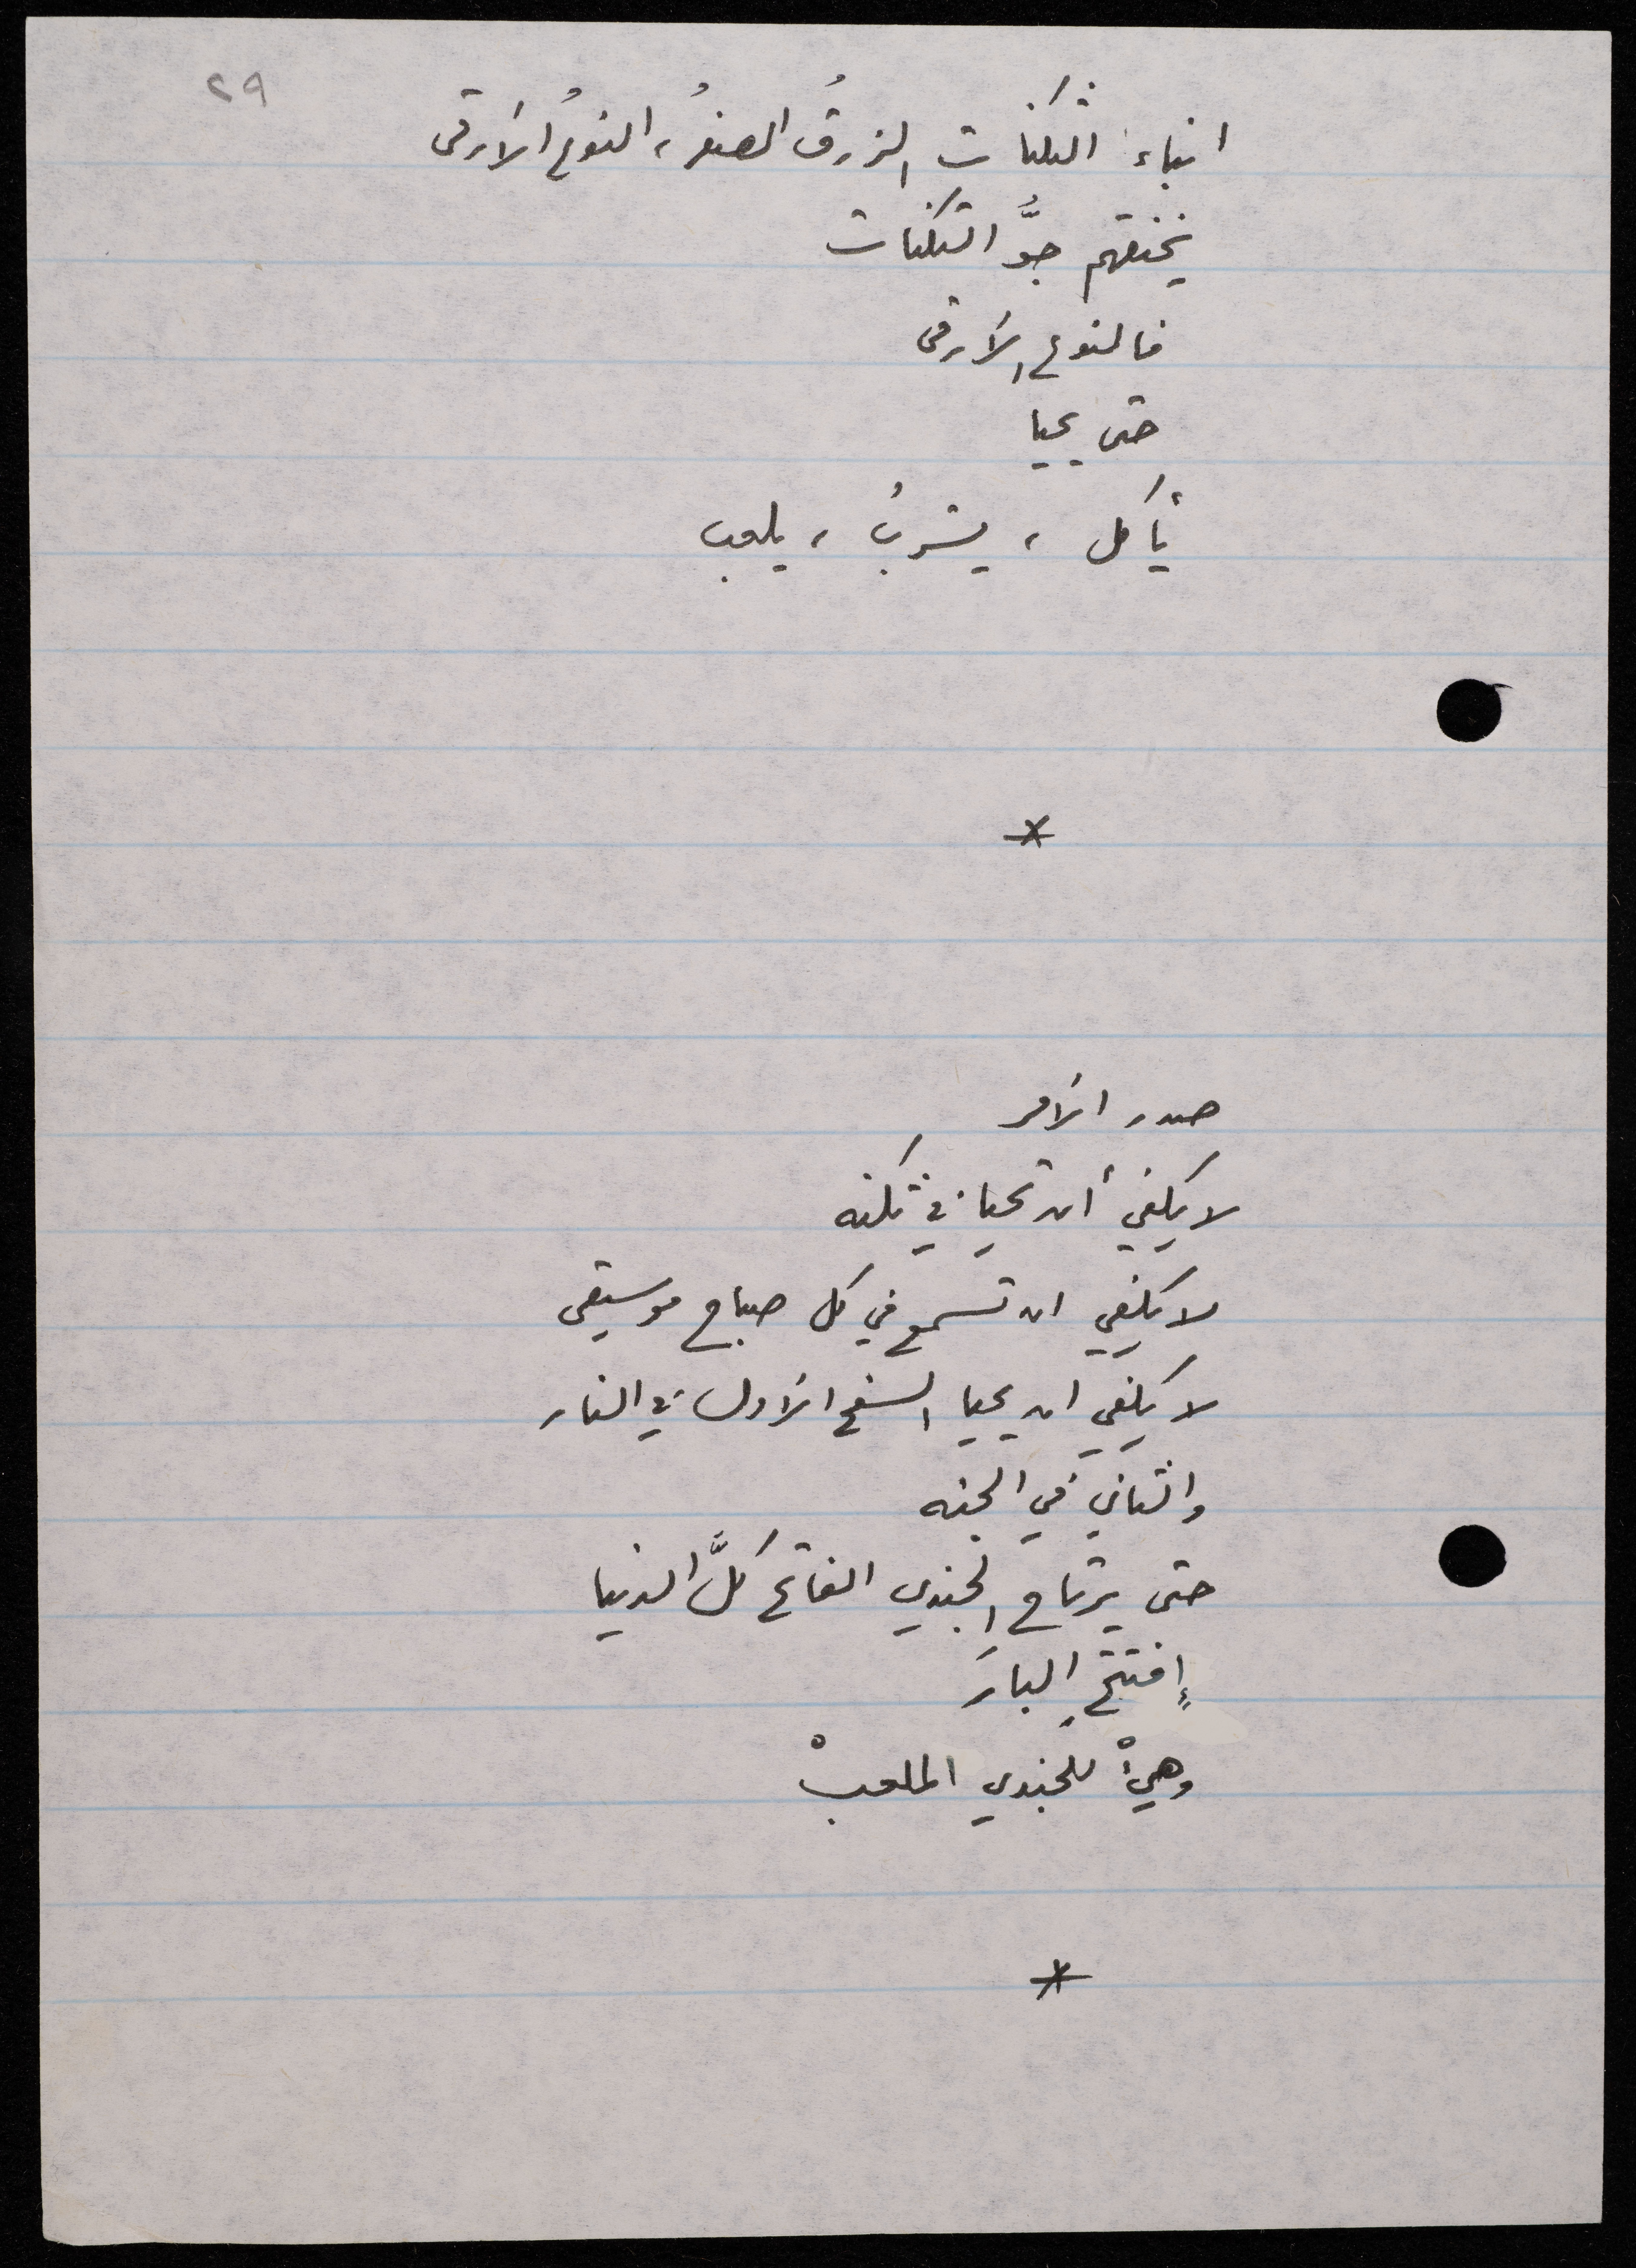 ٢٩
ابناء الثكنات الزرقُ الصفرُ، النوعُ الأرقى
يخنقهم جوُّ الثكنات
فالنوع الأرقى
حتى يحيا
يأكل ، يشربُ ، يلعب
*
صدر الأمر
لا يكفي أن تحيا في ثكنه
لا يكفي ان تسمع في كل صباح موسيقى
لا يكفي ان يحيا السفح الأول في النار
والثاني في الجنه
حتى يرتاح الجندي الفاتح كلَّ الدنيا
إفتتحِ البارَ
وهيءْ للجندي الملعبْ
*